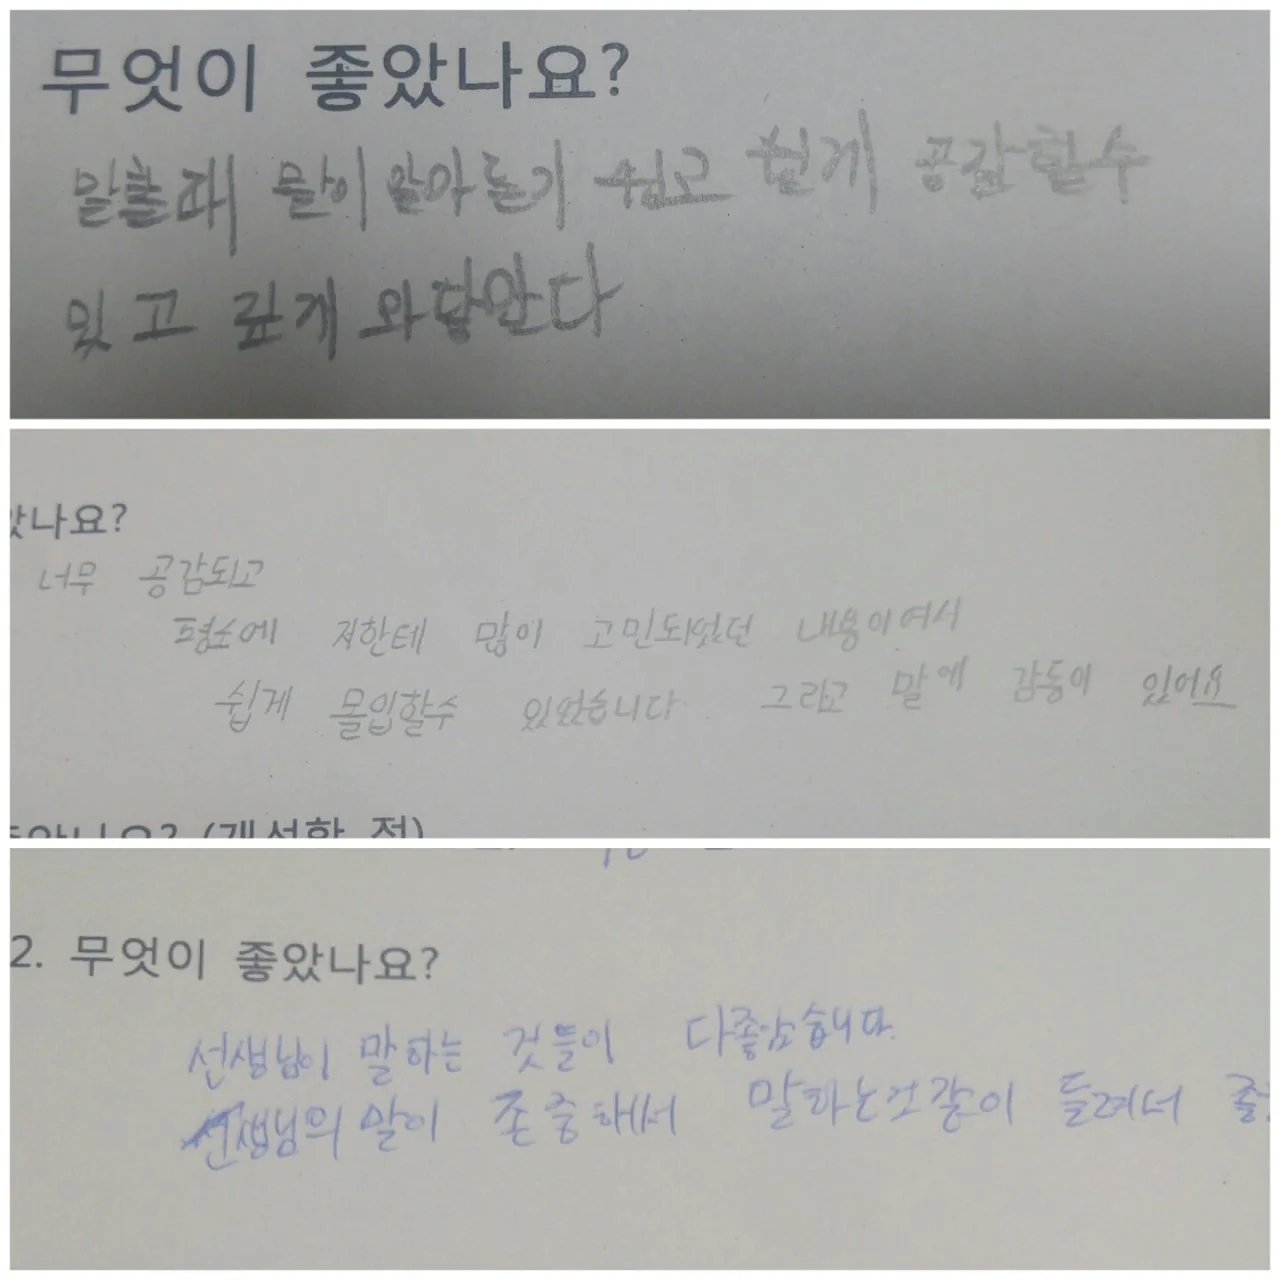 무엇이 좋았나요?
말할때 말이 알아듣기 쉽고 쉽게 공감할수
있고 깊게 와닿았다
았나요?
너무 공감되고
평소에 저한테 많이 고민되었던 내용이여서
쉽게 몰입할수 있었습니다 그리고 말에 감동이 있어요
(개선할 점)
2. 무엇이 좋았나요?
선생님이 말하는 것들이 다좋았습니다.
선생님의 말이 존중해서 말하는것 같이 들려서